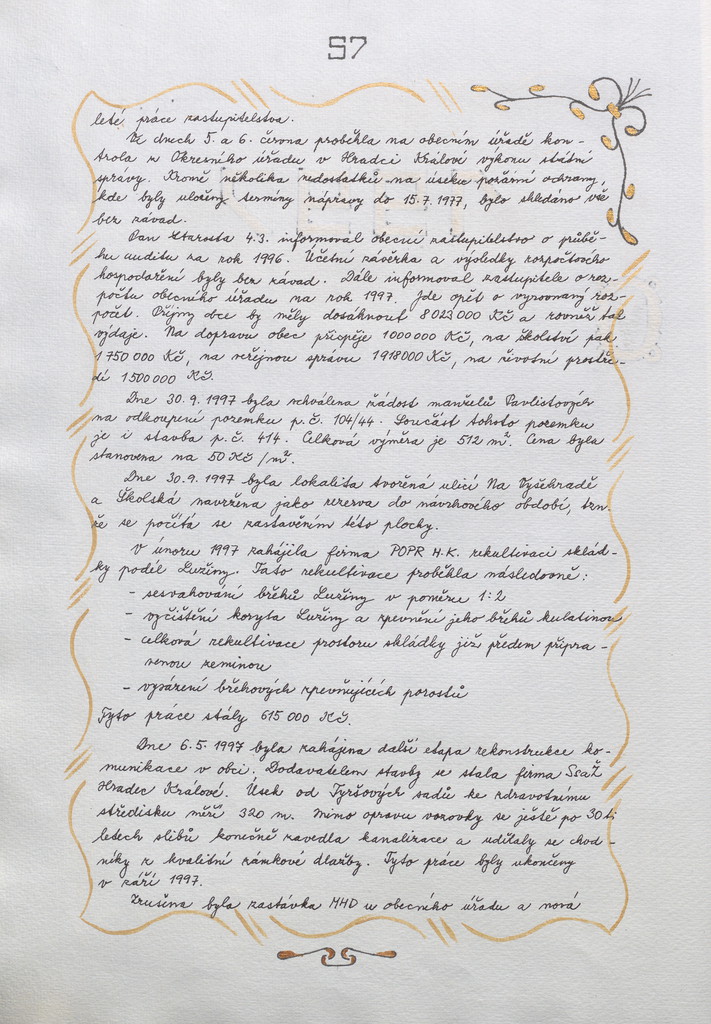 57
leté práce zastupitelstva.
Ve dnech 5. a 6. června proběhla na obecním úřadě kon-
trola z Okresního úřadu v Hradci Králové výkonu státní
správy. Kromě několika nedostatků na úseku požární ochrany,
kde byly uloženy termíny nápravy do 15.7.1977, bylo shledáno vše
bez závad.
Pan starosta 4.3. informoval obecní zastupitelstvo o průbě-
hu auditu za rok 1996. Účetní závěrka a výsledky rozpočtového
hospodaření byly bez závad. Dále informoval zastupitele o roz-
počtu obecního úřadu na rok 1997. Jde opět o vyrovnaný roz-
počet. Příjmy obce by měly dosáhnout 8 023 000 Kč a rovněž tak
výdaje. Na dopravu obec přispěje 1 000 000 Kč, na školství pak
1 750 000 Kč, na veřejnou správu 1 918 000 Kč, na životní prostře-
dí 1 500 000 Kč.
Dne 30.9.1997 byla schválena žádost manželů Pavlistových
na odkoupení pozemku p.č. 104/44. Součást tohoto pozemku
je i stavba p.č. 414. Celková výměra je 512 m². Cena byla
stanovena na 50 Kč/m².
Dne 30.9.1997 byla lokalita tvořená ulicí Na Vyšehradě
a Školská navržena jako rezerva do návrhového období, tzn.
že se počítá se zastavěním této plochy.
V únoru 1997 zahájila firma POPR H.K. rekultivaci sklád-
ky podél Lužiny. Tato rekultivace proběhla následovně:
- sesvahování břehů Lužiny v poměru 1:2
- vyčištění koryta Lužiny a zpevnění jeho břehů kulatinou
- celková rekultivace prostoru skládky již předem připra-
venou zeminou
- vysázení břehových zpevňujících porostů
Tyto práce stály 615 000 Kč.
Dne 6.5.1997 byla zahájena další etapa rekonstrukce ko-
munikace v obci. Dodavatelem stavby se stala firma SSaŽ
Hradec Králové. Úsek od Tyršových sadů ke zdravotnímu
středisku měří 320 m. Mimo opravu vozovky se ještě po 30ti
letech slibů konečně zavedla kanalizace a udělaly se chod-
níky z kvalitní zámkové dlažby. Tyto práce byly ukončeny
v září 1997.
Zrušena byla zastávka MHD u obecního úřadu a nová